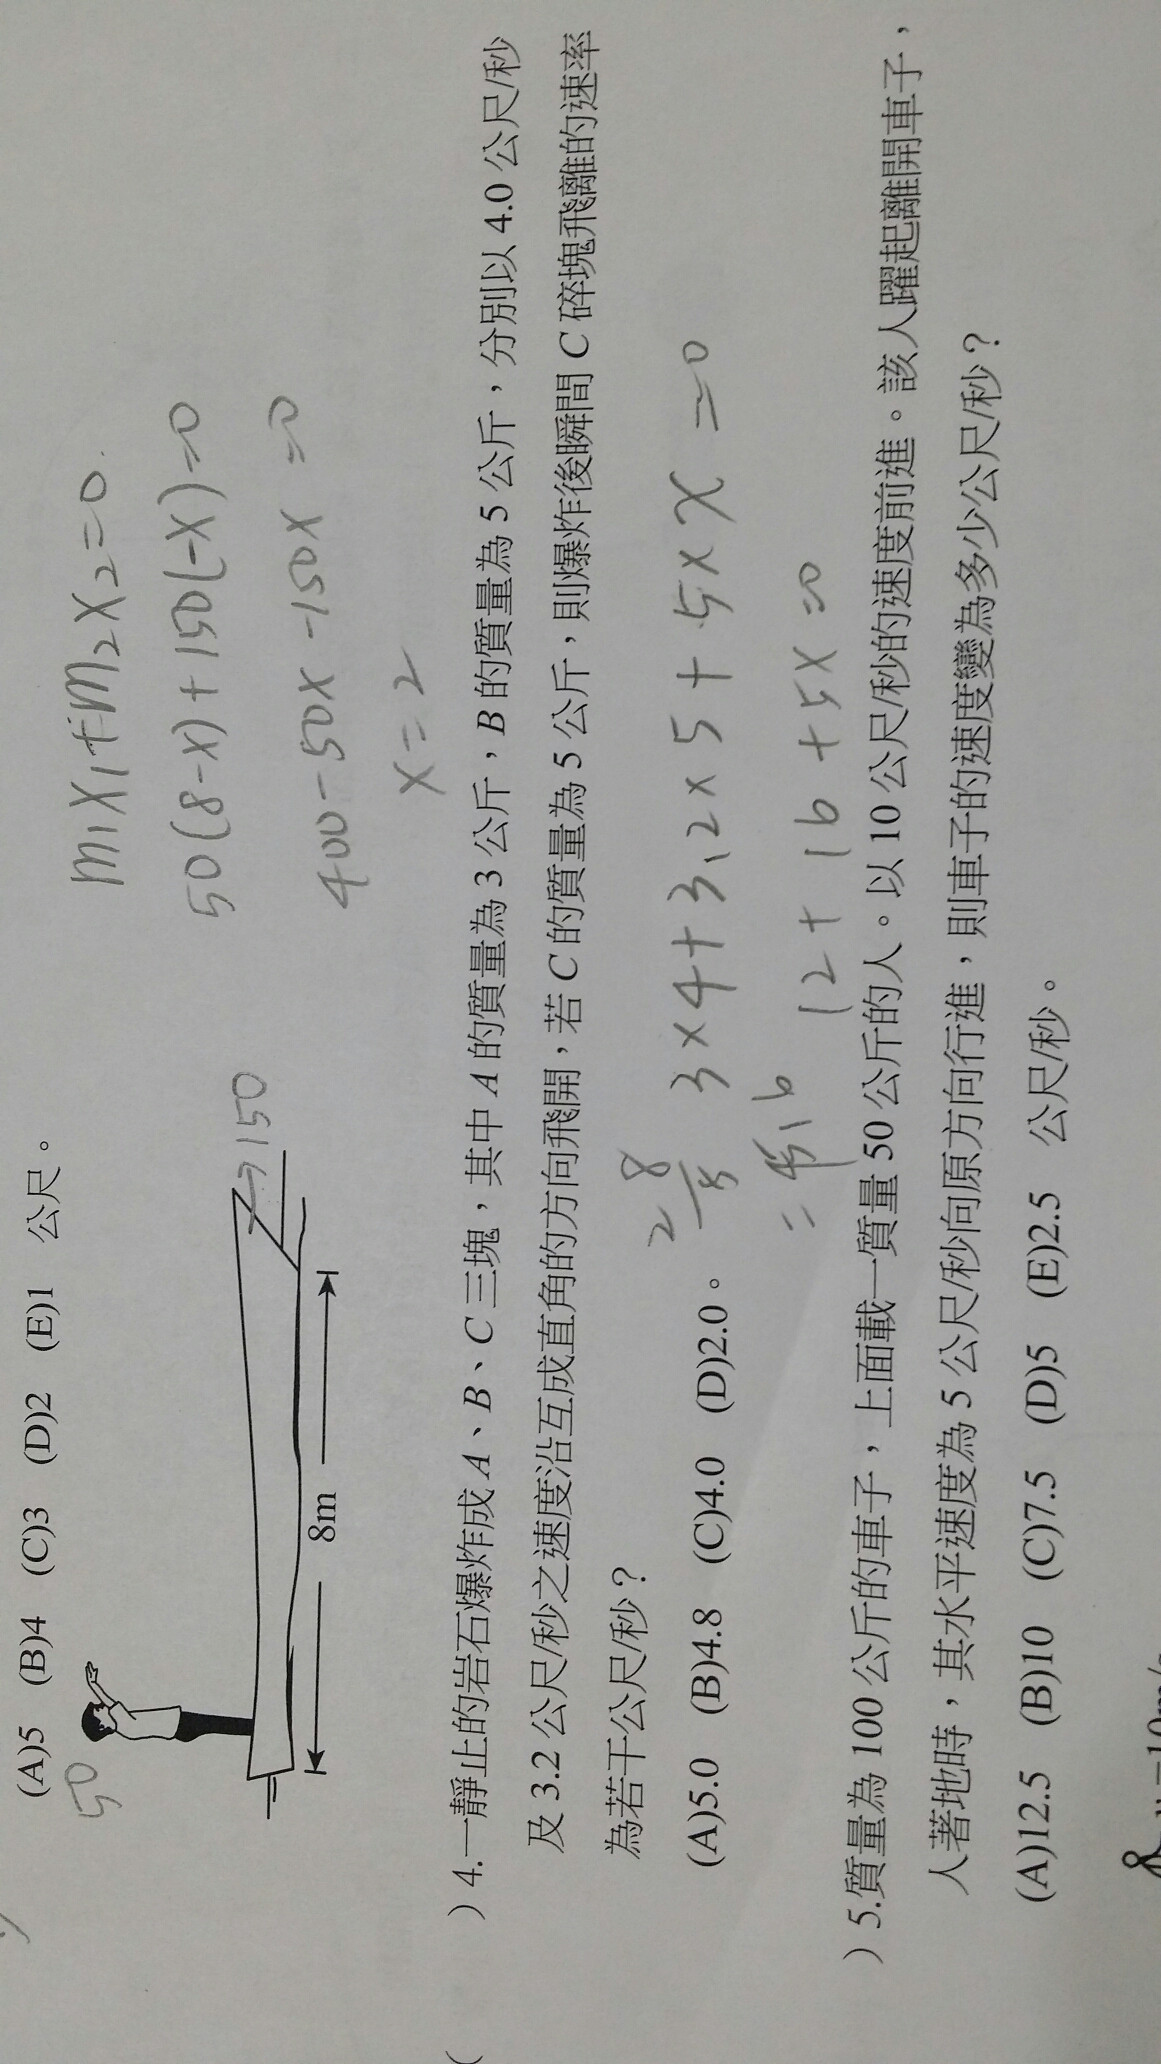 (A)5 (B)4 (C)3 (D)2 (E)1 公尺。
50
8m
→150
m₁x₁+m₂x₂=0
50(8-x)+150(-x)=0
400-50x-150x=0
x=2
( )4.一靜止的岩石爆炸成 A、B、C 三塊，其中 A 的質量為 3 公斤，B 的質量為 5 公斤，分別以 4.0 公尺/秒
及 3.2 公尺/秒之速度沿互成直角的方向飛開，若 C 的質量為 5 公斤，則爆炸後瞬間 C 碎塊飛離的速率
為若干公尺/秒？
(A)5.0 (B)4.8 (C)4.0 (D)2.0。
3×4+3.2×5+5×x=0
12+16+5x=0
)5.質量為 100 公斤的車子，上面載一質量 50 公斤的人。以 10 公尺/秒的速度前進。該人躍起離開車子，
人著地時，其水平速度為 5 公尺/秒向原方向行進，則車子的速度變為多少公尺/秒？
(A)12.5 (B)10 (C)7.5 (D)5 (E)2.5 公尺/秒。